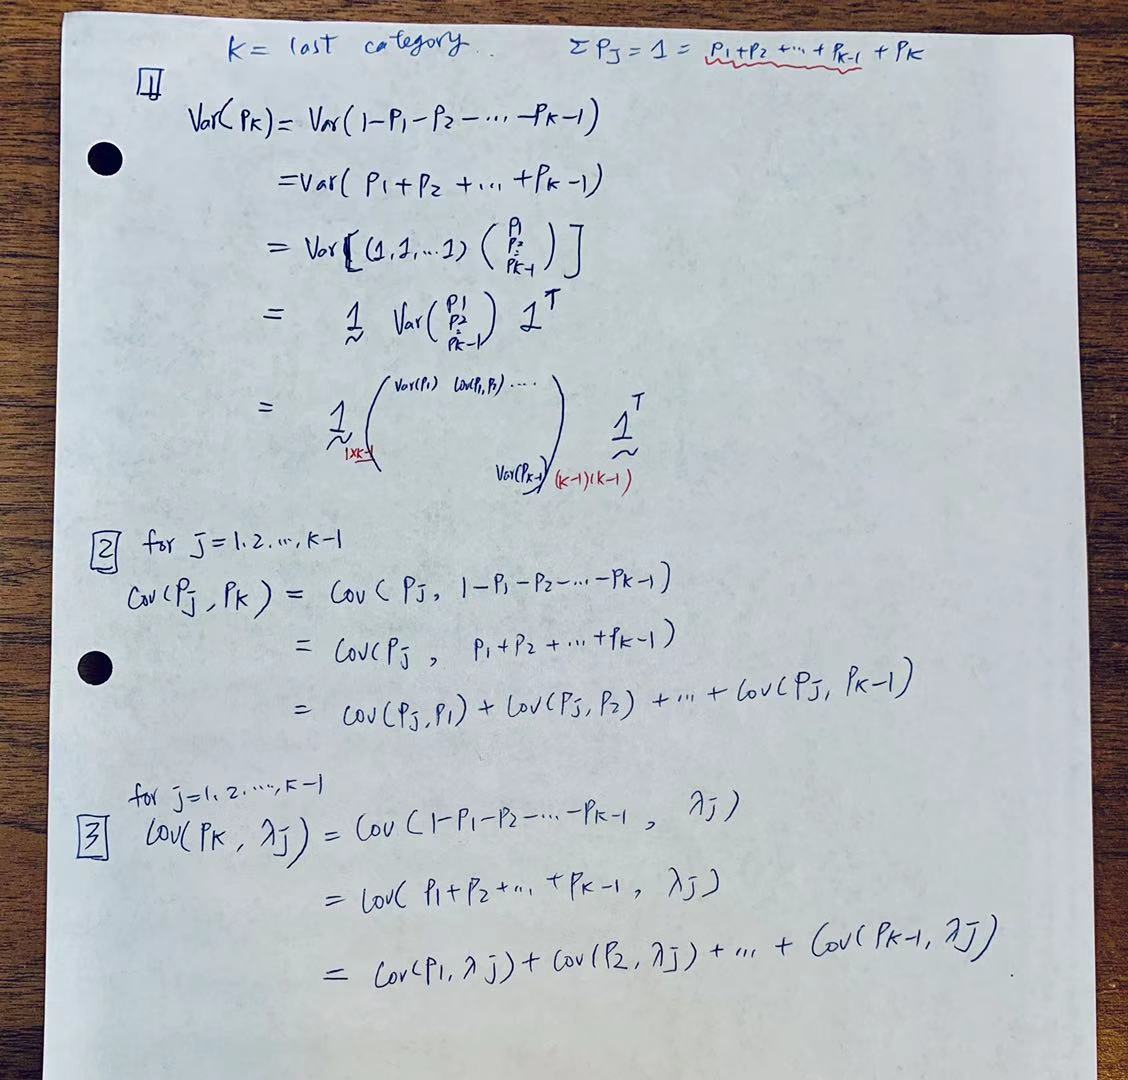 K = last category.. Σ Pj = 1 = P1+P2 + ... + PK-1 + PK
1
Var(PK) = Var(1-P1-P2-...-PK-1)
=Var(P1+P2 +... +PK-1)
= Var[(1,1,...1) (P1 P2 : PK-1)]
= 1 Var(P1 P2 : PK-1) 1^T
= 1 (Var(P1) Cov(P1,P2) ....
1×K-1 Var(PK-1)) (K-1)(K-1) 1^T
2 for j=1.2. ..., K-1
Cov(Pj, PK) = Cov(Pj, 1-P1-P2-...-PK-1)
= Cov(Pj, P1+P2+...+PK-1)
= Cov(Pj,P1) + Cov(Pj,P2) + ... + Cov(Pj, PK-1)
for j=1.2. ...., K-1
3 Cov(PK, λj) = Cov(1-P1-P2-...-PK-1, λj)
= Cov(P1+P2+... +PK-1, λj)
= Cov(P1, λj) + Cov(P2, λj) + ... + Cov(PK-1, λj)